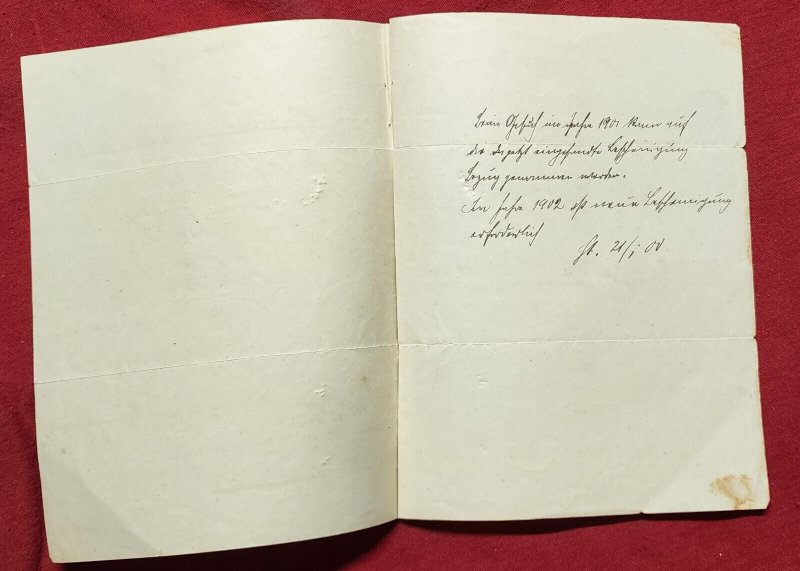 Beim Gesuch im Jahre 1901 kann auf
die jetzt eingesandte Bescheinigung
Bezug genommen werden.
Im Jahre 1902 ist neue Bescheinigung
erforderlich
21/1 00.